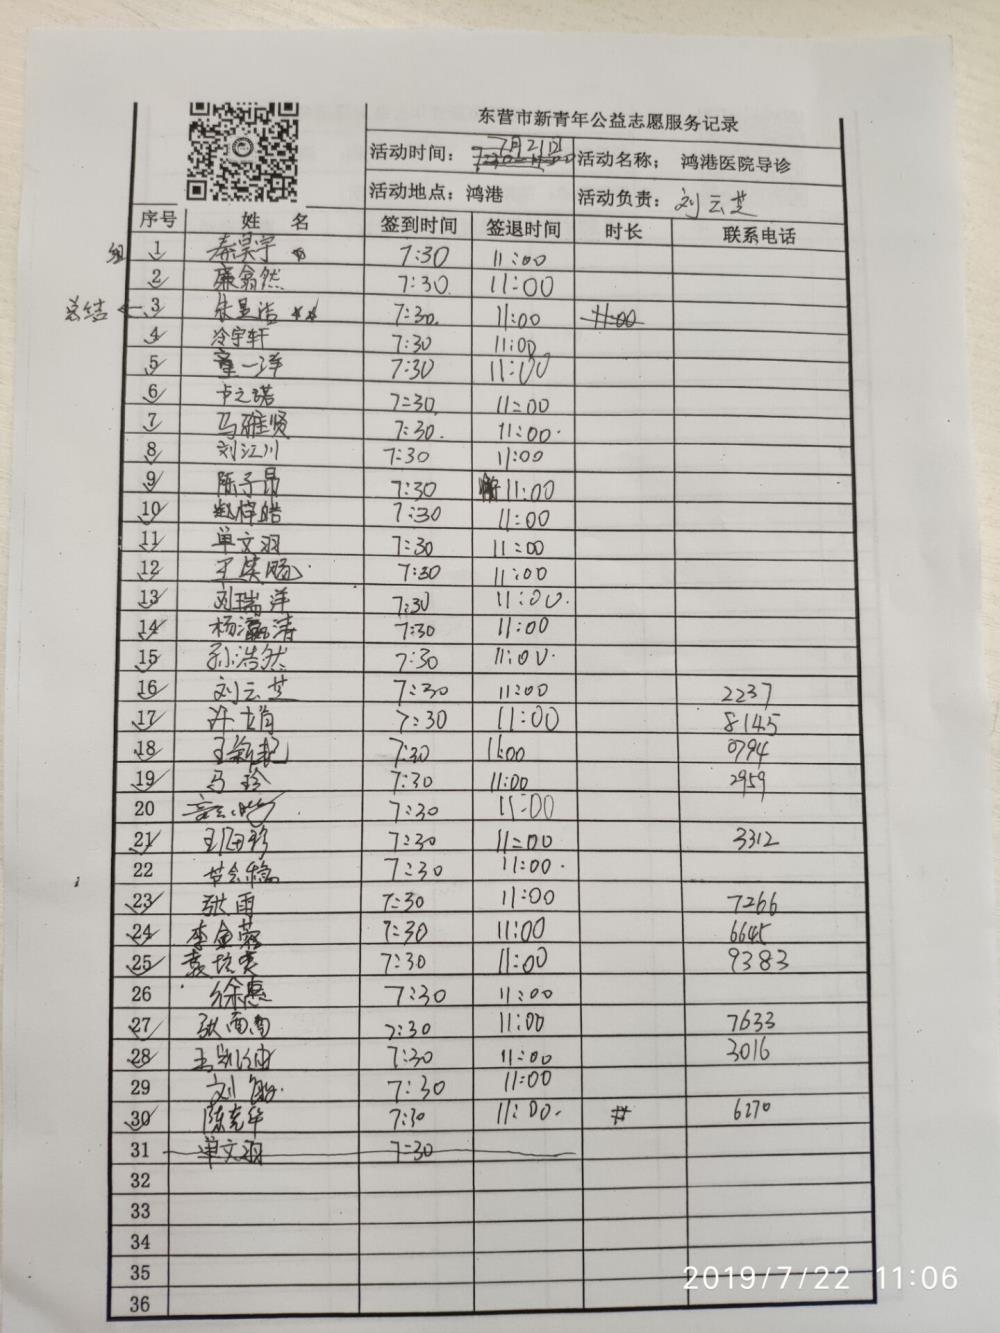 东营市新青年公益志愿服务记录
活动时间: 7月21日 活动名称: 鸿港医院导诊
活动地点: 鸿港 活动负责: 刘云芝
序号 姓 名 签到时间 签退时间 时长 联系电话
1 秦昊宇 7:30 11:00
2 廉翕然 7:30 11:00
总结 3 7:30 11:00 11:00
4 冷宇轩 7:30 11:00
5 董一泽 7:30 11:00
6 卢之诺 7:30 11:00
7 马雅贤 7:30 11:00
8 刘江川 7:30 11:00
9 陈子昂 7:30 11:00
10 赵梓皓 7:30 11:00
11 单文羽 7:30 11:00
12 7:30 11:00
13 刘瑞洋 7:30 11:00
14 杨瀛涛 7:30 11:00
15 孙浩然 7:30 11:00
16 刘云芝 7:30 11:00 2237
17 7:30 11:00 8145
18 7:30 11:00 0794
19 马玲 7:30 11:00 2959
20 7:30 11:00
21 7:30 11:00 3312
22 7:30 11:00
23 张雨 7:30 11:00 7266
24 李金蓉 7:30 11:00 6645
25 7:30 11:00 9383
26 徐惠 7:30 11:00
27 张南南 7:30 11:00 7633
28 7:30 11:00 3016
29 刘敏 7:30 11:00
30 陈克华 7:30 11:00 # 6270
31 单文羽 7:30
32
33
34
35
36
2019/7/22 11:06